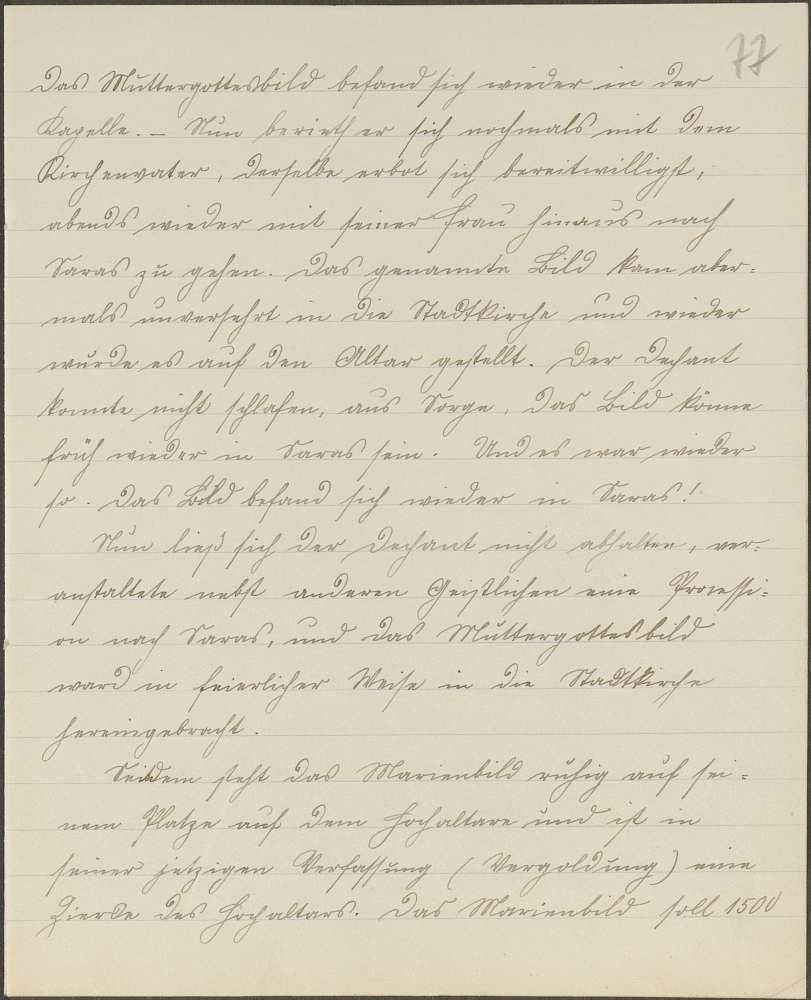 77
Das Muttergottesbild befand sich wieder in der
Kapelle. – Nun berieth er sich nochmals mit dem
Kirchenvater, derselbe erbot sich bereitwilligst,
abends wieder mit seiner Frau hinaus nach
Saras zu gehen. Das genannte Bild kam aber=
mals unversehrt in die Stadtkirche und wieder
wurde es auf den Altar gestellt. Der Dechant
konnte nicht schlafen, aus Sorge, das Bild könne
früh wieder in Saras sein. Und es war wieder
so. Das Bild befand sich wieder in Saras!
Nun ließ sich der Dechant nicht abhalten, ver=
anstaltete nebst anderen Geistlichen eine Processi=
on nach Saras, und das Muttergottesbild
ward in feierlicher Weise in die Stadtkirche
hereingebracht.
Seitdem steht das Marienbild ruhig auf sei=
nem Platze auf dem Hochaltare und ist in
seiner jetzigen Verfassung (Vergoldung) eine
Zierde des Hochaltars. Das Marienbild soll 1500